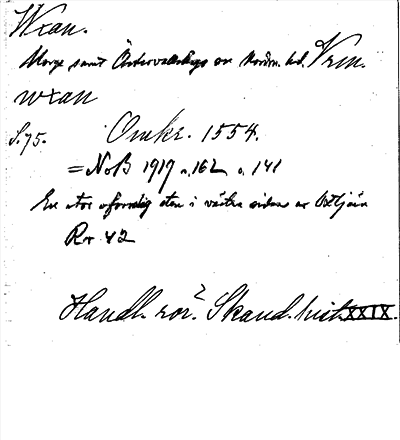 Wxan.
Morge samt Östervallskogs sn Nordm. hd. Vrm.
wxan
S. 75. Omkr. 1554.
= NoB 1919 s. 162 o. 141
En stor oformlig sten i västra sidan av Östsjön
Rr 42
Handl. rör. Skand. hist. XXIX.